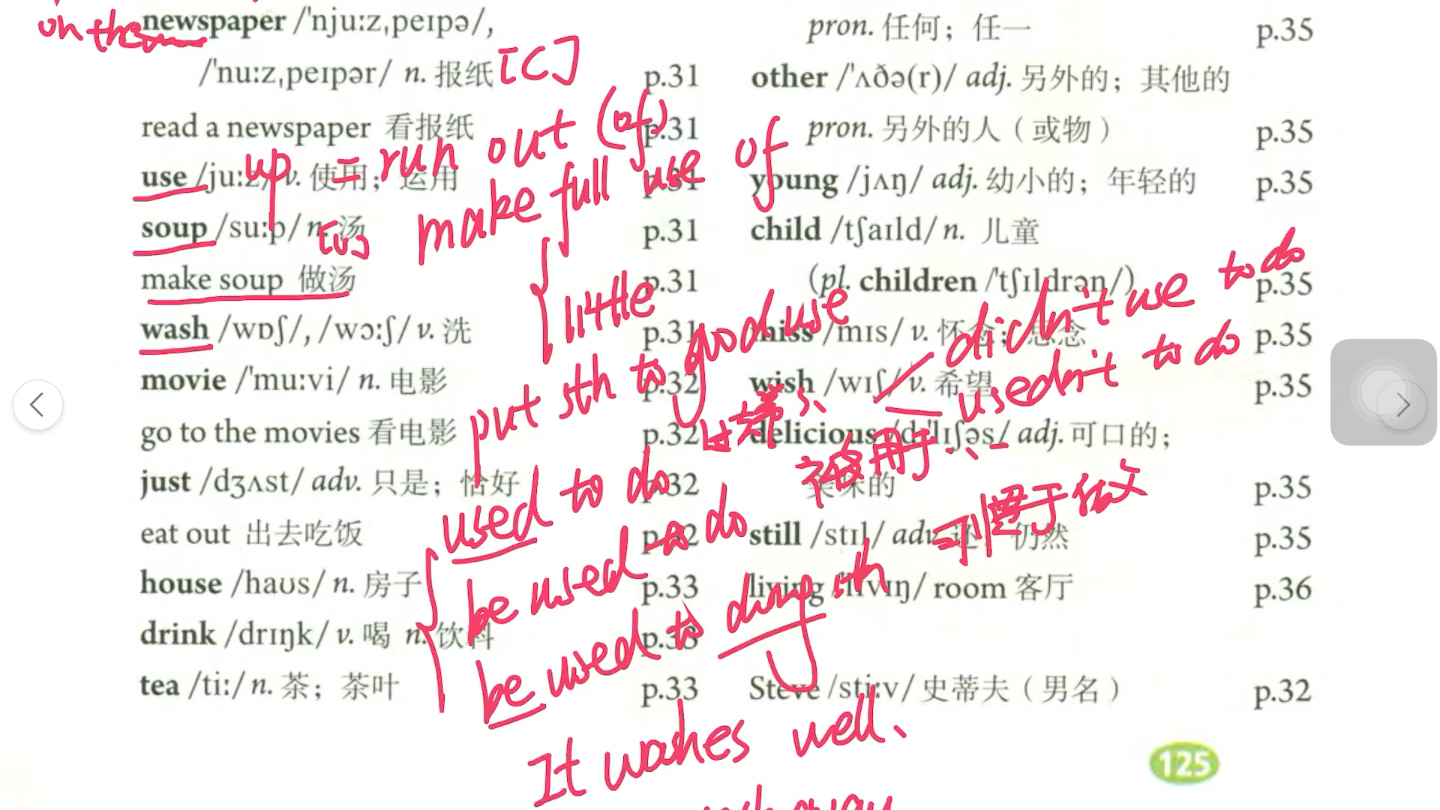 on them
newspaper /'nju:z,peɪpə/,
/'nu:z,peɪpər/ n. 报纸 [C] p.31
read a newspaper 看报纸 p.31
use /ju:z/ v. 使用；运用 p.31
up = run out (of)
soup /su:p/ n. 汤 [U] p.31
make full use of
little
make soup 做汤 p.31
wash /wɒʃ/, /wɔ:ʃ/ v. 洗 p.31
put sth to good use
movie /'mu:vi/ n. 电影 p.32
go to the movies 看电影 p.32
just /dʒʌst/ adv. 只是；恰好 p.32
used to do 过去常常
didn't use to do
usedn't to do
eat out 出去吃饭 p.32
be used to do 被用于...
house /haʊs/ n. 房子 p.33
be used to doing sth 习惯于做
drink /drɪŋk/ v. 喝 n. 饮料 p.33
tea /ti:/ n. 茶；茶叶 p.33
It washes well.
pron. 任何；任一 p.35
other /'ʌðə(r)/ adj. 另外的；其他的
pron. 另外的人（或物） p.35
young /jʌŋ/ adj. 幼小的；年轻的 p.35
child /tʃaɪld/ n. 儿童
(pl. children /'tʃɪldrən/) p.35
miss /mɪs/ v. 怀念；思念 p.35
wish /wɪʃ/ v. 希望 p.35
delicious /dɪ'lɪʃəs/ adj. 可口的；
美味的 p.35
still /stɪl/ adv. 还；仍然 p.35
living /'lɪvɪŋ/ room 客厅 p.36
Steve /sti:v/ 史蒂夫（男名） p.32
125